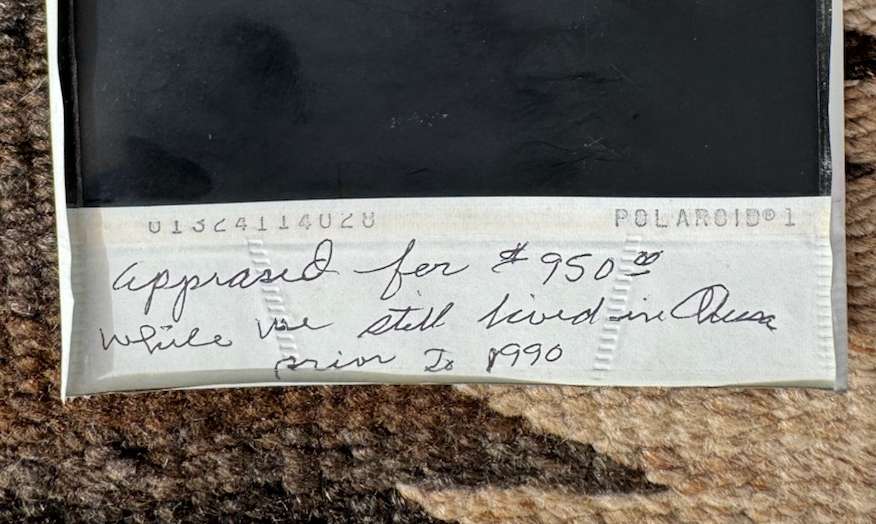 01324114028 POLAROID® 1
apprased for $950.00
while we still lived in
prior to 1990